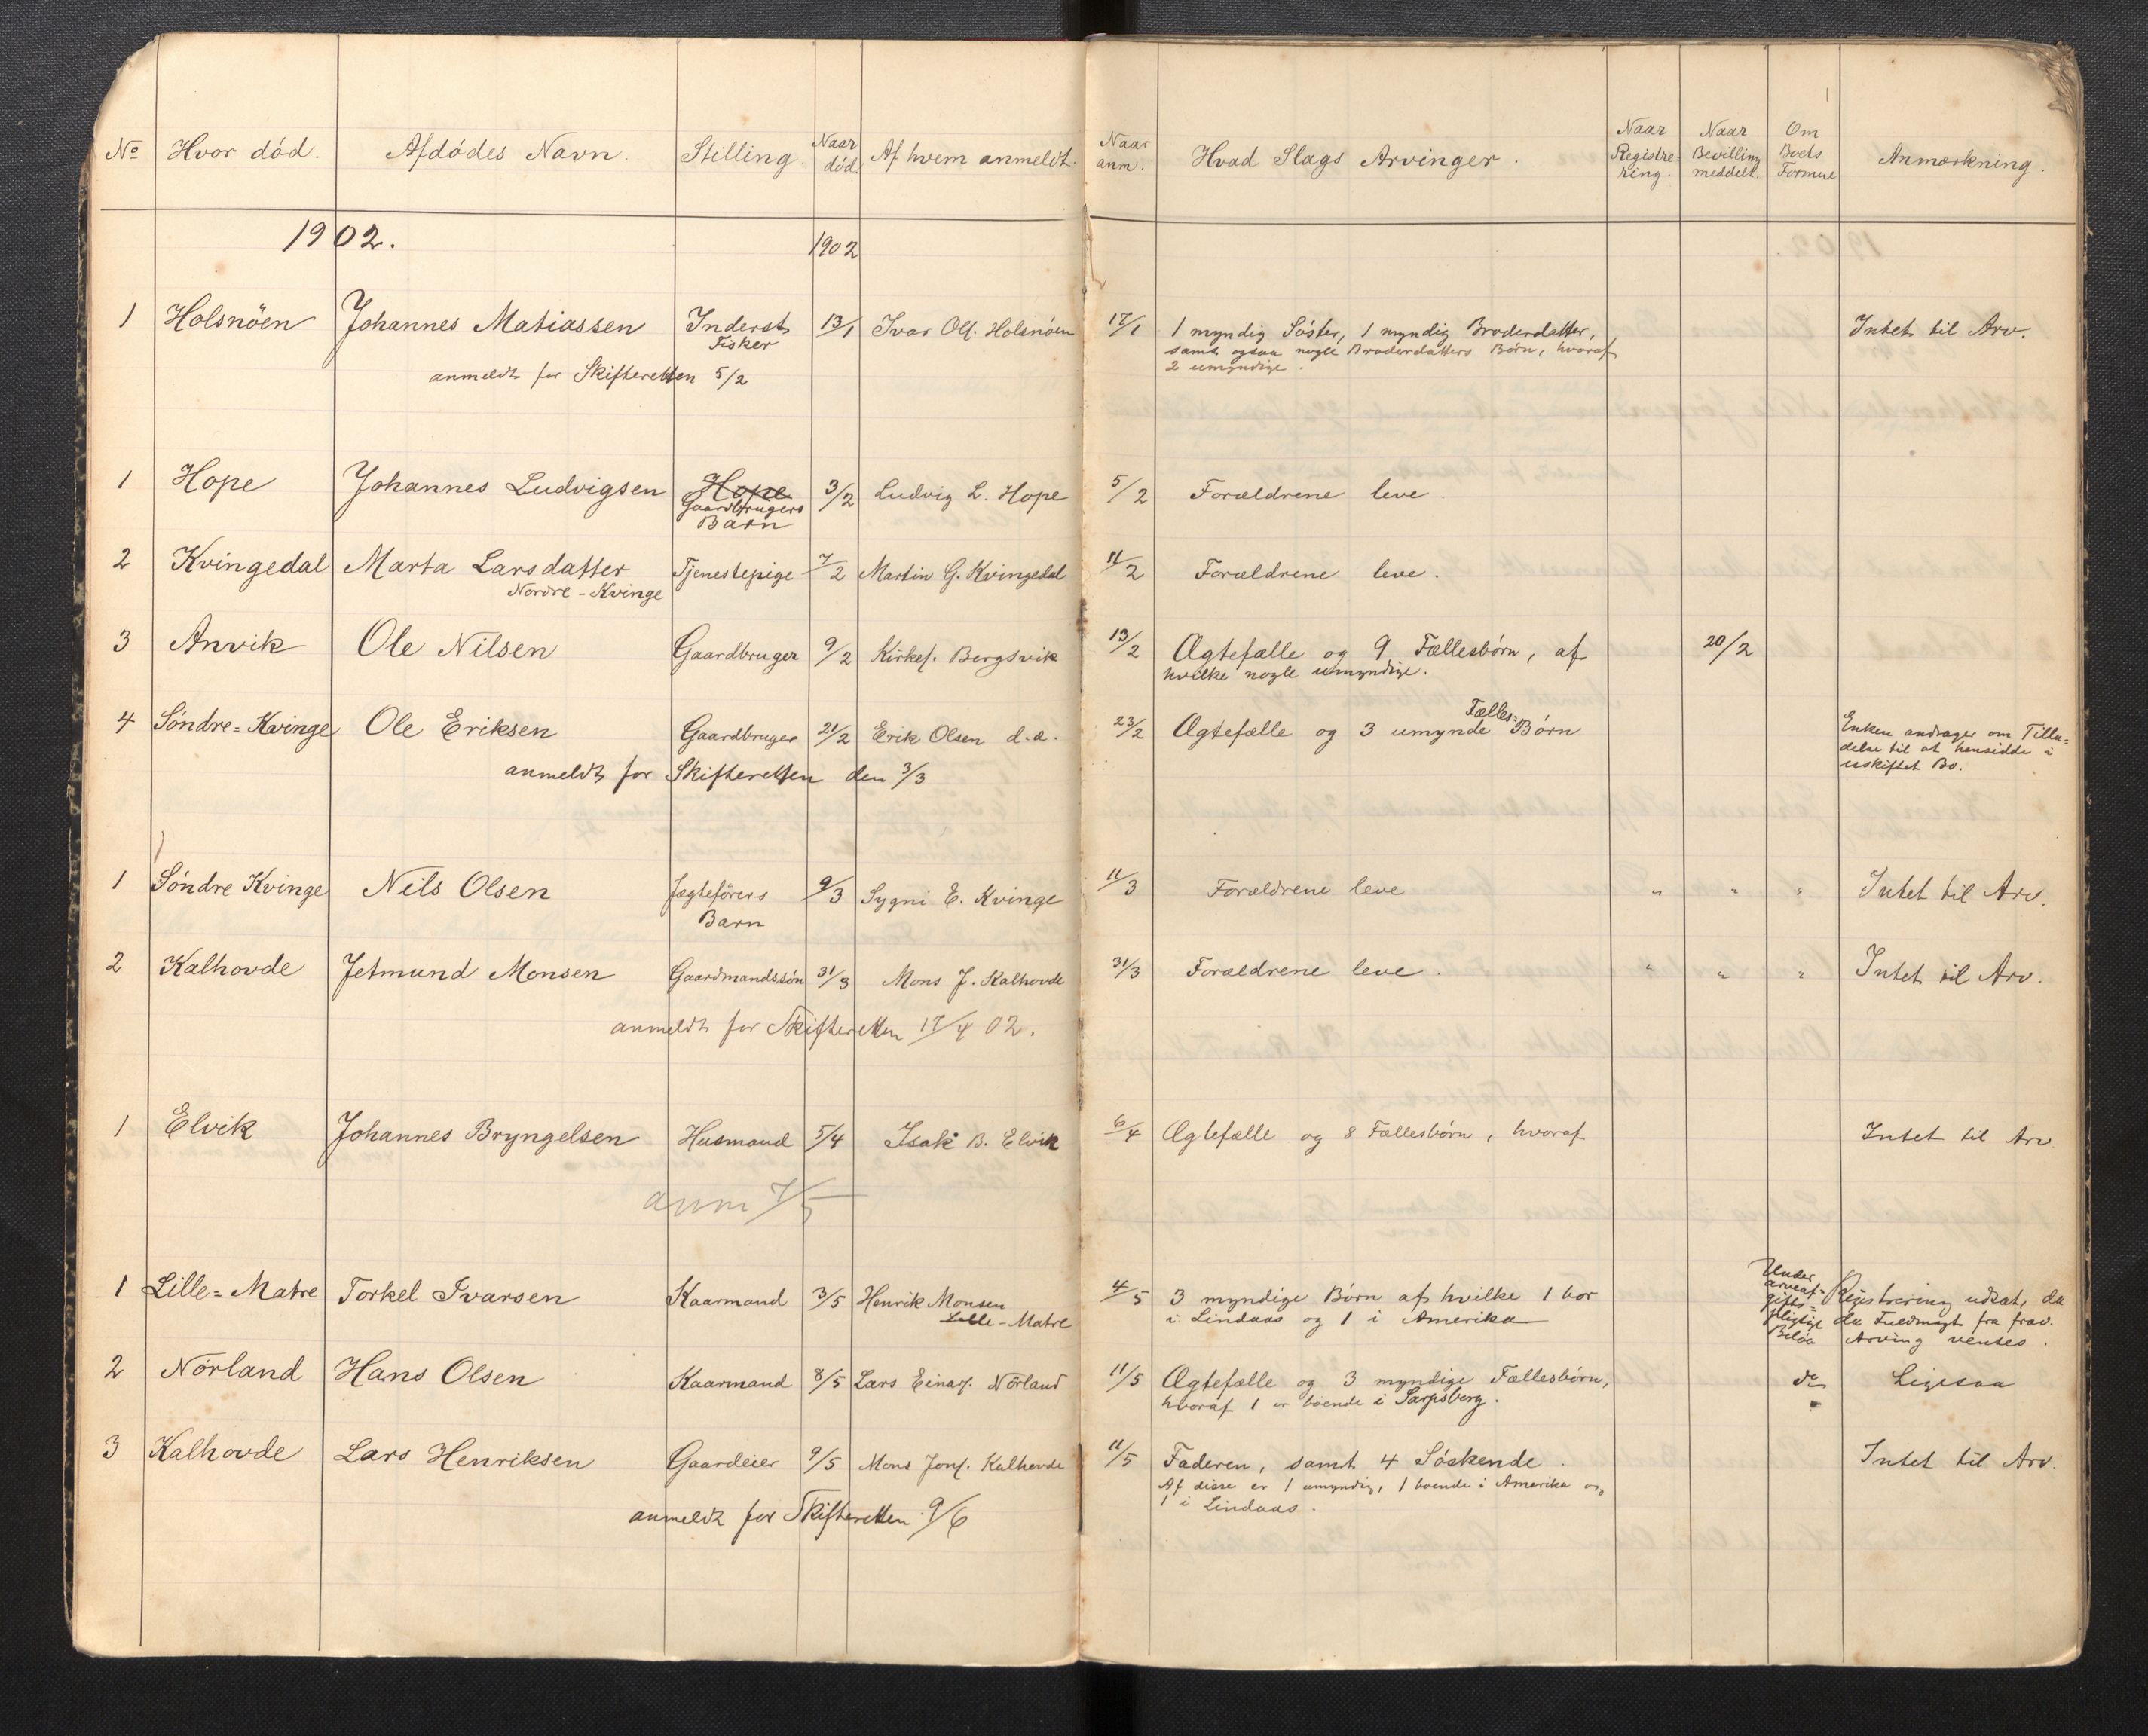 No Hvor död. Afdödes Navn. Stilling. Naar död. Af hvem anmeldt. Naar anm. Hvad Slags Arvinger. Naar Registrering. Naar Bevilling meddelt. Om Boets Formue Anmærkning.
1902. 1902
1 Holsnöen Johannes Matiassen Inderst 13/1 Ivar Ols. Holsnöen 17/1 1 myndig Söster, 1 myndig Broderdatter, Intet til Arv.
Fisker samt ogsaa nogle Broderdatters Börn, hvoraf
anmeldt for Skifteretten 5/2 2 umyndige.
1 Hope Johannes Ludvigsen Hope 3/2 Ludvig L. Hope 5/2 Forældrene leve.
Gaardbrugers
Barn
2 Kvingedal Marta Larsdatter Tjenestepige 7/2 Martin G. Kvingedal 11/2 Forældrene leve.
Nordre-Kvinge
3 Anvik Ole Nilsen Gaardbruger 9/2 Kirkes. Bergsvik 13/2 Ægtefælle og 9 Fællesbörn, af 20/2
hvilke nogle umyndige.
4 Söndre=Kvinge Ole Eriksen Gaardbruger 21/2 Erik Olsen d.æ. 23/2 Ægtefælle og 3 umynde Fælles=Börn Enken andrager om Tilla=
delse til at hensidde i
uskiftet Bo.
anmeldt for Skifteretten den 3/3
1 Söndre Kvinge Nils Olsen Jægteförers 9/3 Sygni E. Kvinge 11/3 Forældrene leve " " " Intet til Arv.
Barn
2 Kalhovde Jetmund Monsen Gaardmandssön 31/3 Mons J. Kalhovde 31/3 Forældrene leve. " " " Intet til Arv.
anmeldt for Skifteretten 17/4 02.
1 Elvik Johannes Bryngelsen Husmand 5/4 Isak B. Elvik 6/4 Ægtefælle og 8 Fællesbörn, hvoraf Intet til Arv
anm 7/5
1 Lille=Matre Torkel Ivarsen Kaarmand 3/5 Henrik Monsen 4/5 3 myndige Börn af hvilke 1 bor Under Registrering udsat, da
Lille-Matre i Lindaas og 1 i Amerika arveaf-
gifts=
pligtige da Fuldmagt fra frav.
Belöb Arving ventes.
2 Nörland Hans Olsen Kaarmand 8/5 Lars Einars. Nörland 11/5 Ægtefælle og 3 myndige Fællesbörn, do Ligesaa
hvoraf 1 er boende i Sarpsborg.
3 Kalhovde Lars Henriksen Gaardeier 9/5 Mons Jons. Kalhovde 11/5 Faderen, samt 4 Söskende. Intet til Arv.
Af disse er 1 umyndig, 1 boende i Amerika og
1 i Lindaas.
anmeldt for Skifteretten 9/6